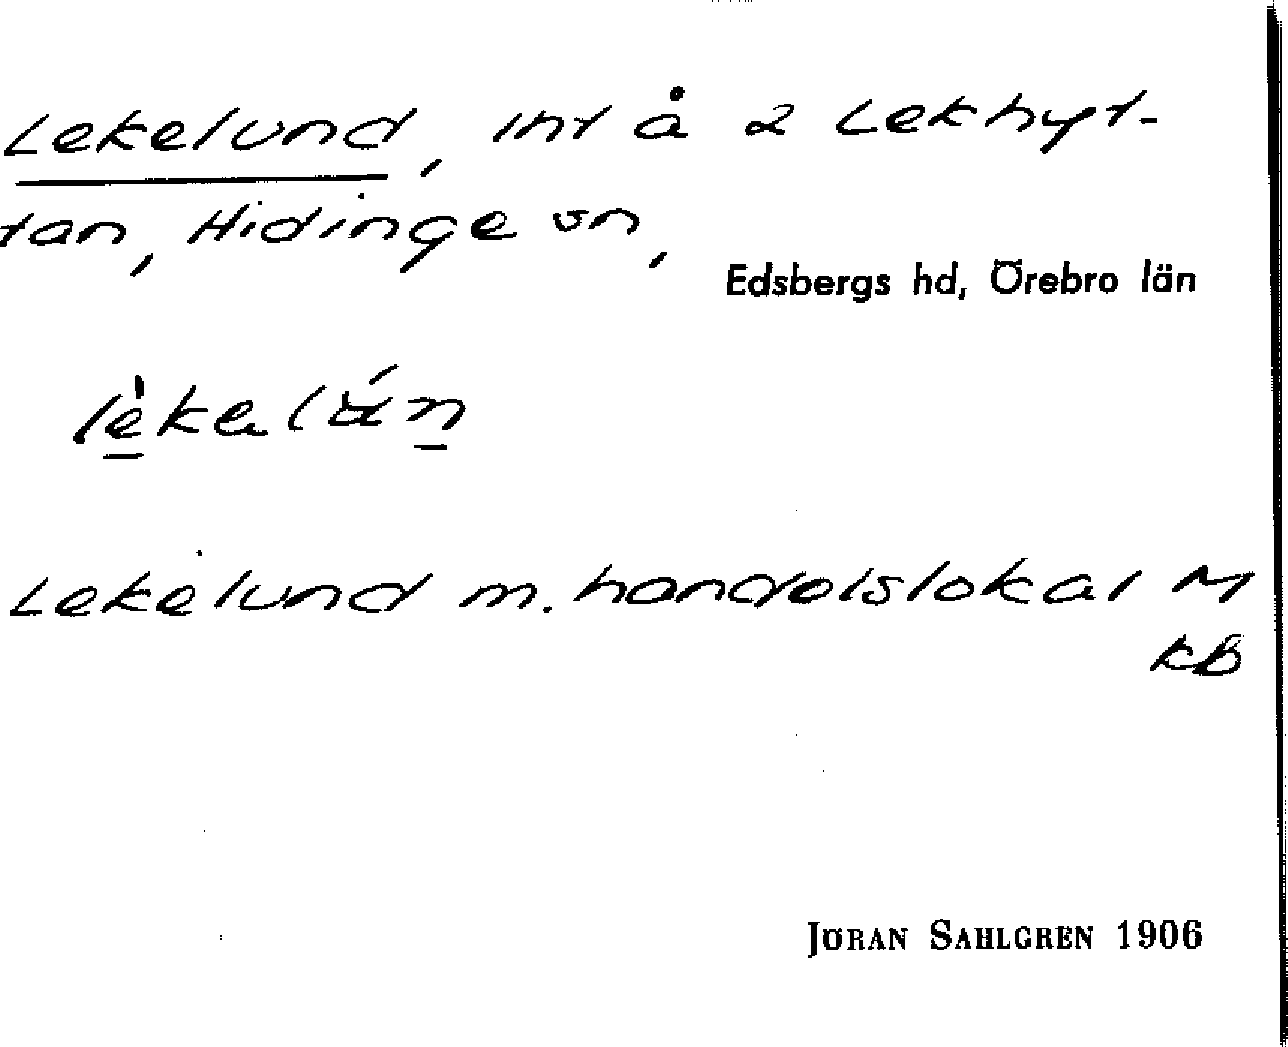 Lekelund, int å 2 Lekhyt-
tan, Hidinge sn,
Edsbergs hd, Örebro län
Lekelund m. handelslokal M
KB
JÖRAN SAHLGREN 1906